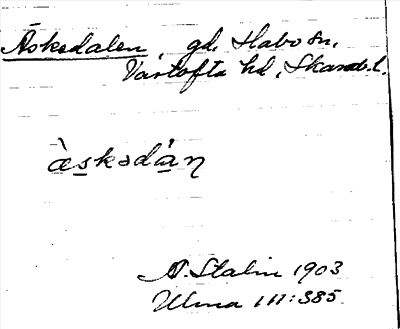 Äskedalen, gd, Habo sn,
Vartofta hd, Skarab. l.
àskədán
A. Stalin 1903
Ulma 111:385.